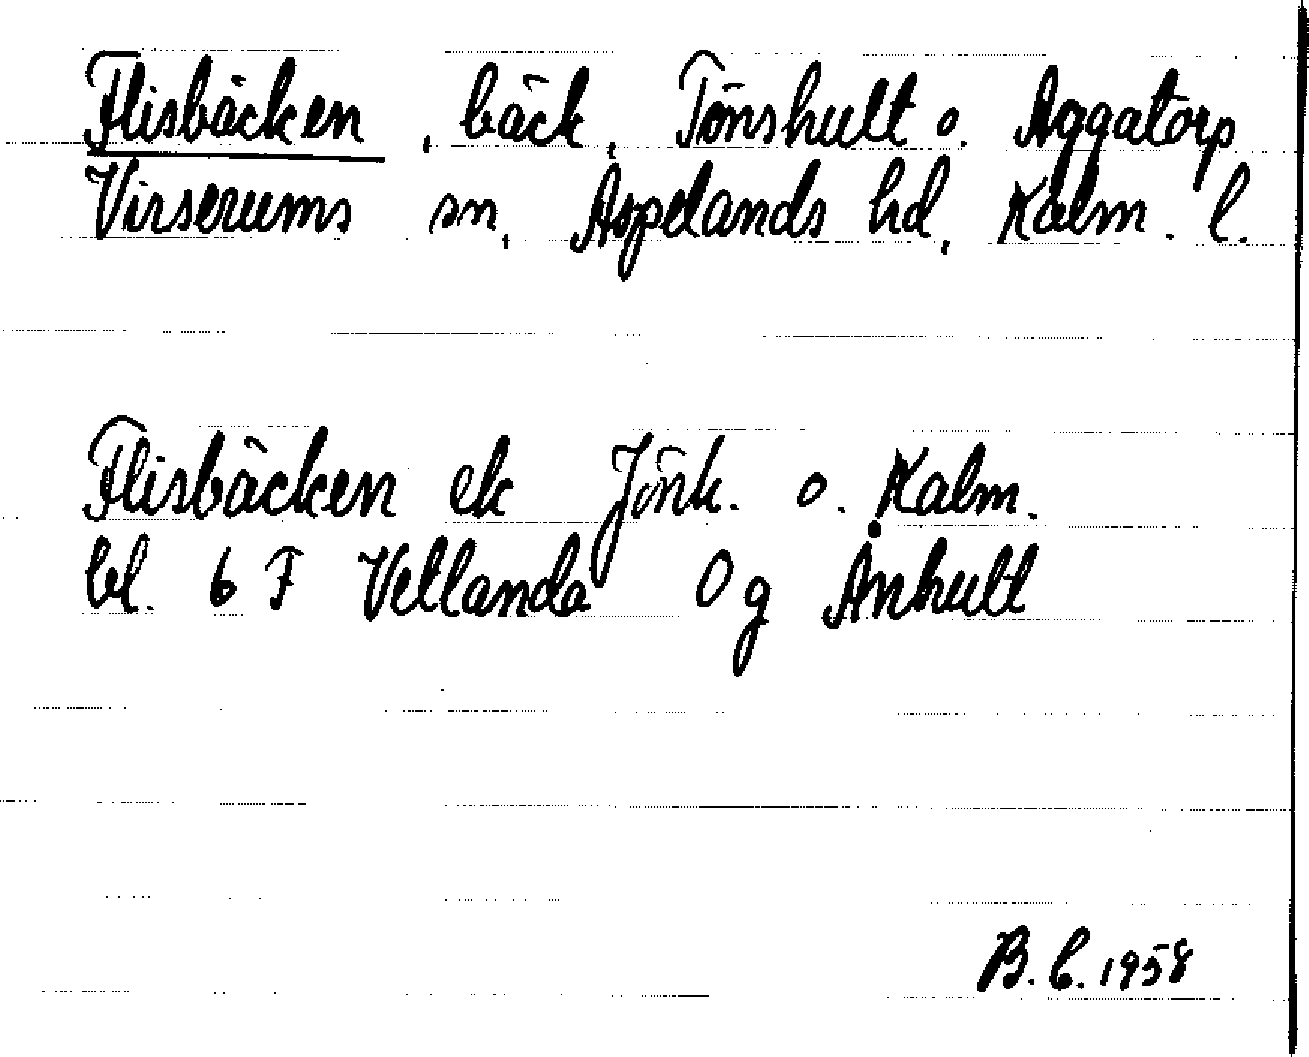 Flisbäcken, bäck, Tönshult o. Aggatorp
Virserums sn, Aspelands hd, Kalm. l.
Flisbäcken ek Jönk. o. Kalm.
bl. 6 F Vetlanda 0 g Ånhult
B.C. 1958